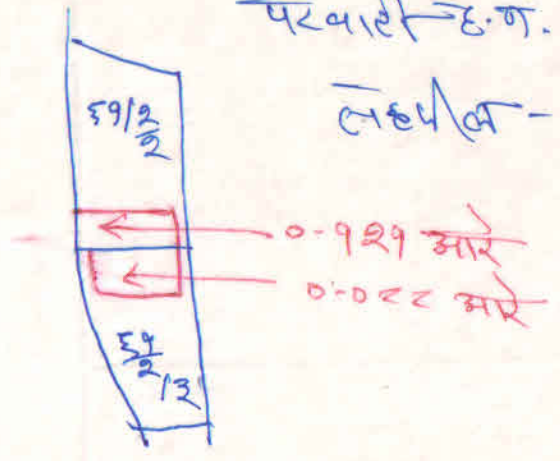 परवारी ह.न.
तहसील -
६१/२/२
०-१२१ आरे
०-०८८ आरे
६१/२/३